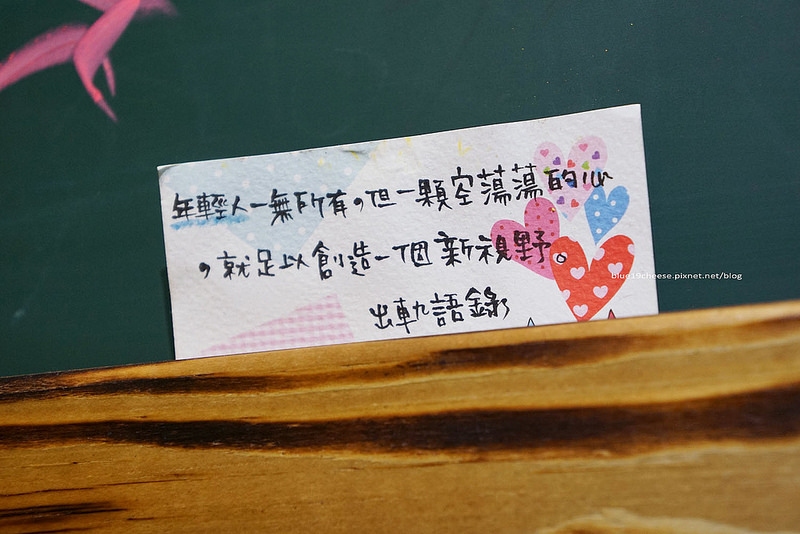 年輕人一無所有，但一顆空蕩蕩的心
，就足以創造一個新視野。
出軌語錄
blue19cheese.pixnet.net/blog